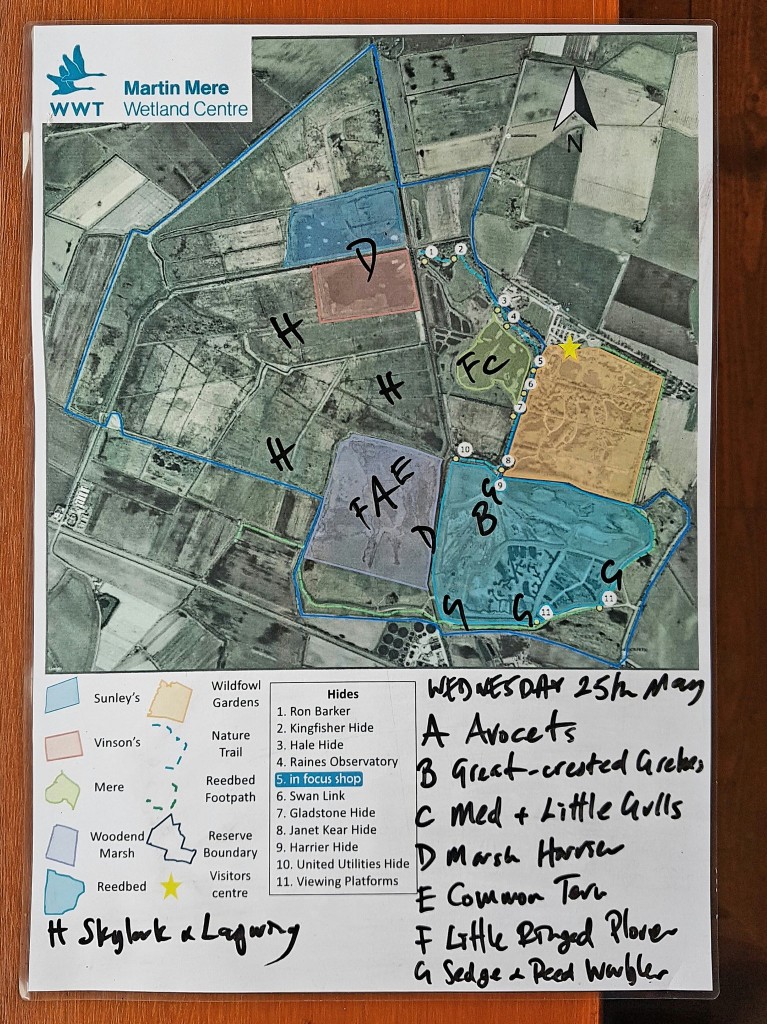 WWT
Martin Mere
Wetland Centre
N
D
1
2
3
4
H
FC
5
H
6
7
H
10
8
FAE
9
G
B
D
G
G
G
11
11
Sunley's
Wildfowl Gardens
Vinson's
Nature Trail
Mere
Reedbed Footpath
Woodend Marsh
Reserve Boundary
Reedbed
Visitors centre
Hides
1. Ron Barker
2. Kingfisher Hide
3. Hale Hide
4. Raines Observatory
5. in focus shop
6. Swan Link
7. Gladstone Hide
8. Janet Kear Hide
9. Harrier Hide
10. United Utilities Hide
11. Viewing Platforms
WEDNESDAY 25th May
A Avocets
B Great-crested Grebes
C Med + Little Gulls
D Marsh Harrier
E Common Tern
F Little Ringed Plover
G Sedge & Reed Warbler
H Skylark & Lapwing